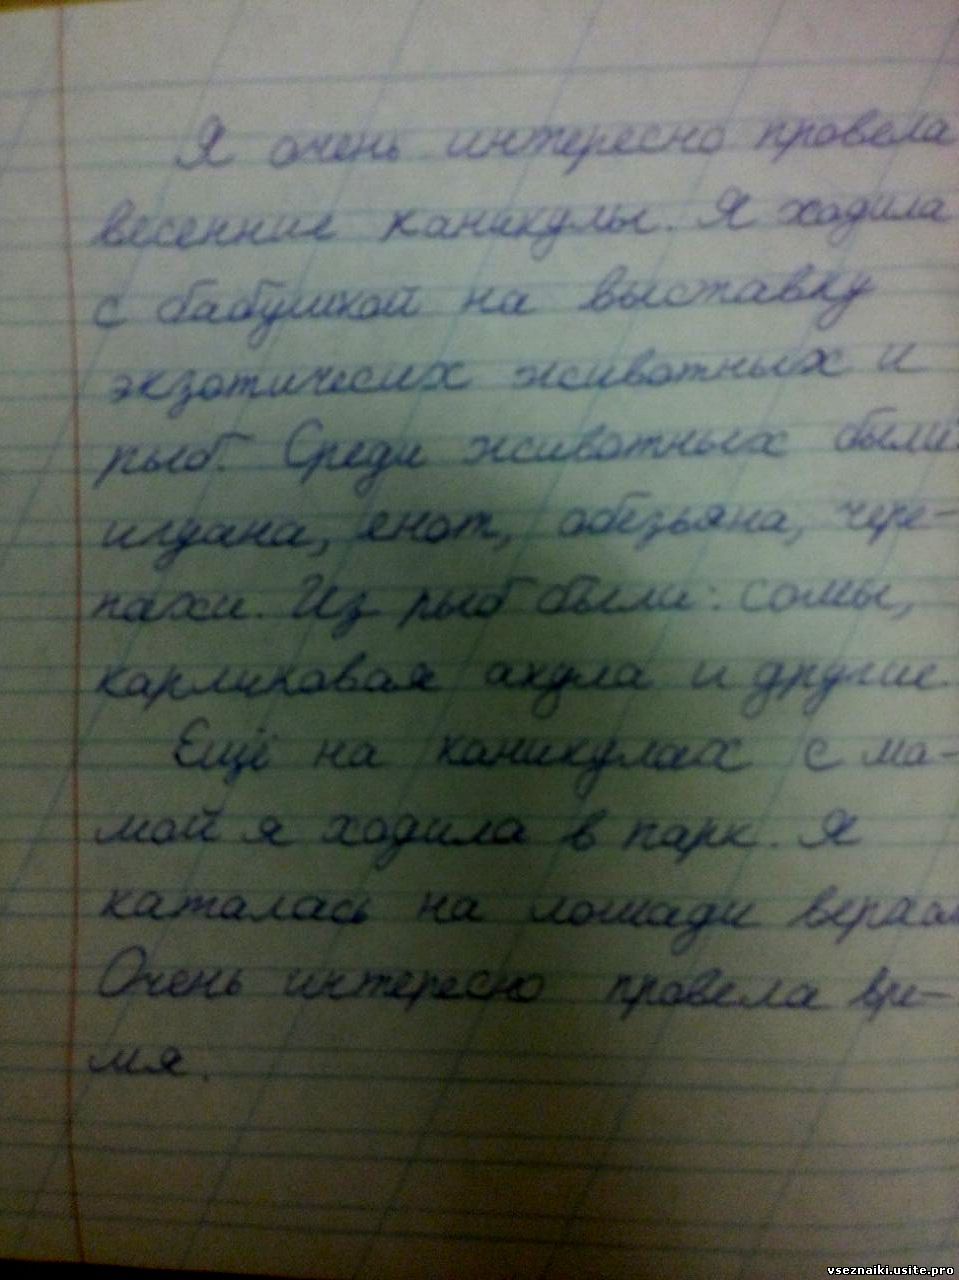 Я очень интересно провела
весенние каникулы. Я ходила
с бабушкой на выставку
экзотичесих животных и
рыб. Среди животных были
игуана, енот, обезьяна, чере-
пахи. Из рыб были: сомы,
карликовая акула и другие.
Ещё на каникулах с ма-
мой я ходила в парк. Я
каталась на лошади верхом
Очень интересно провела вре-
мя.
vseznaiki.usite.pro